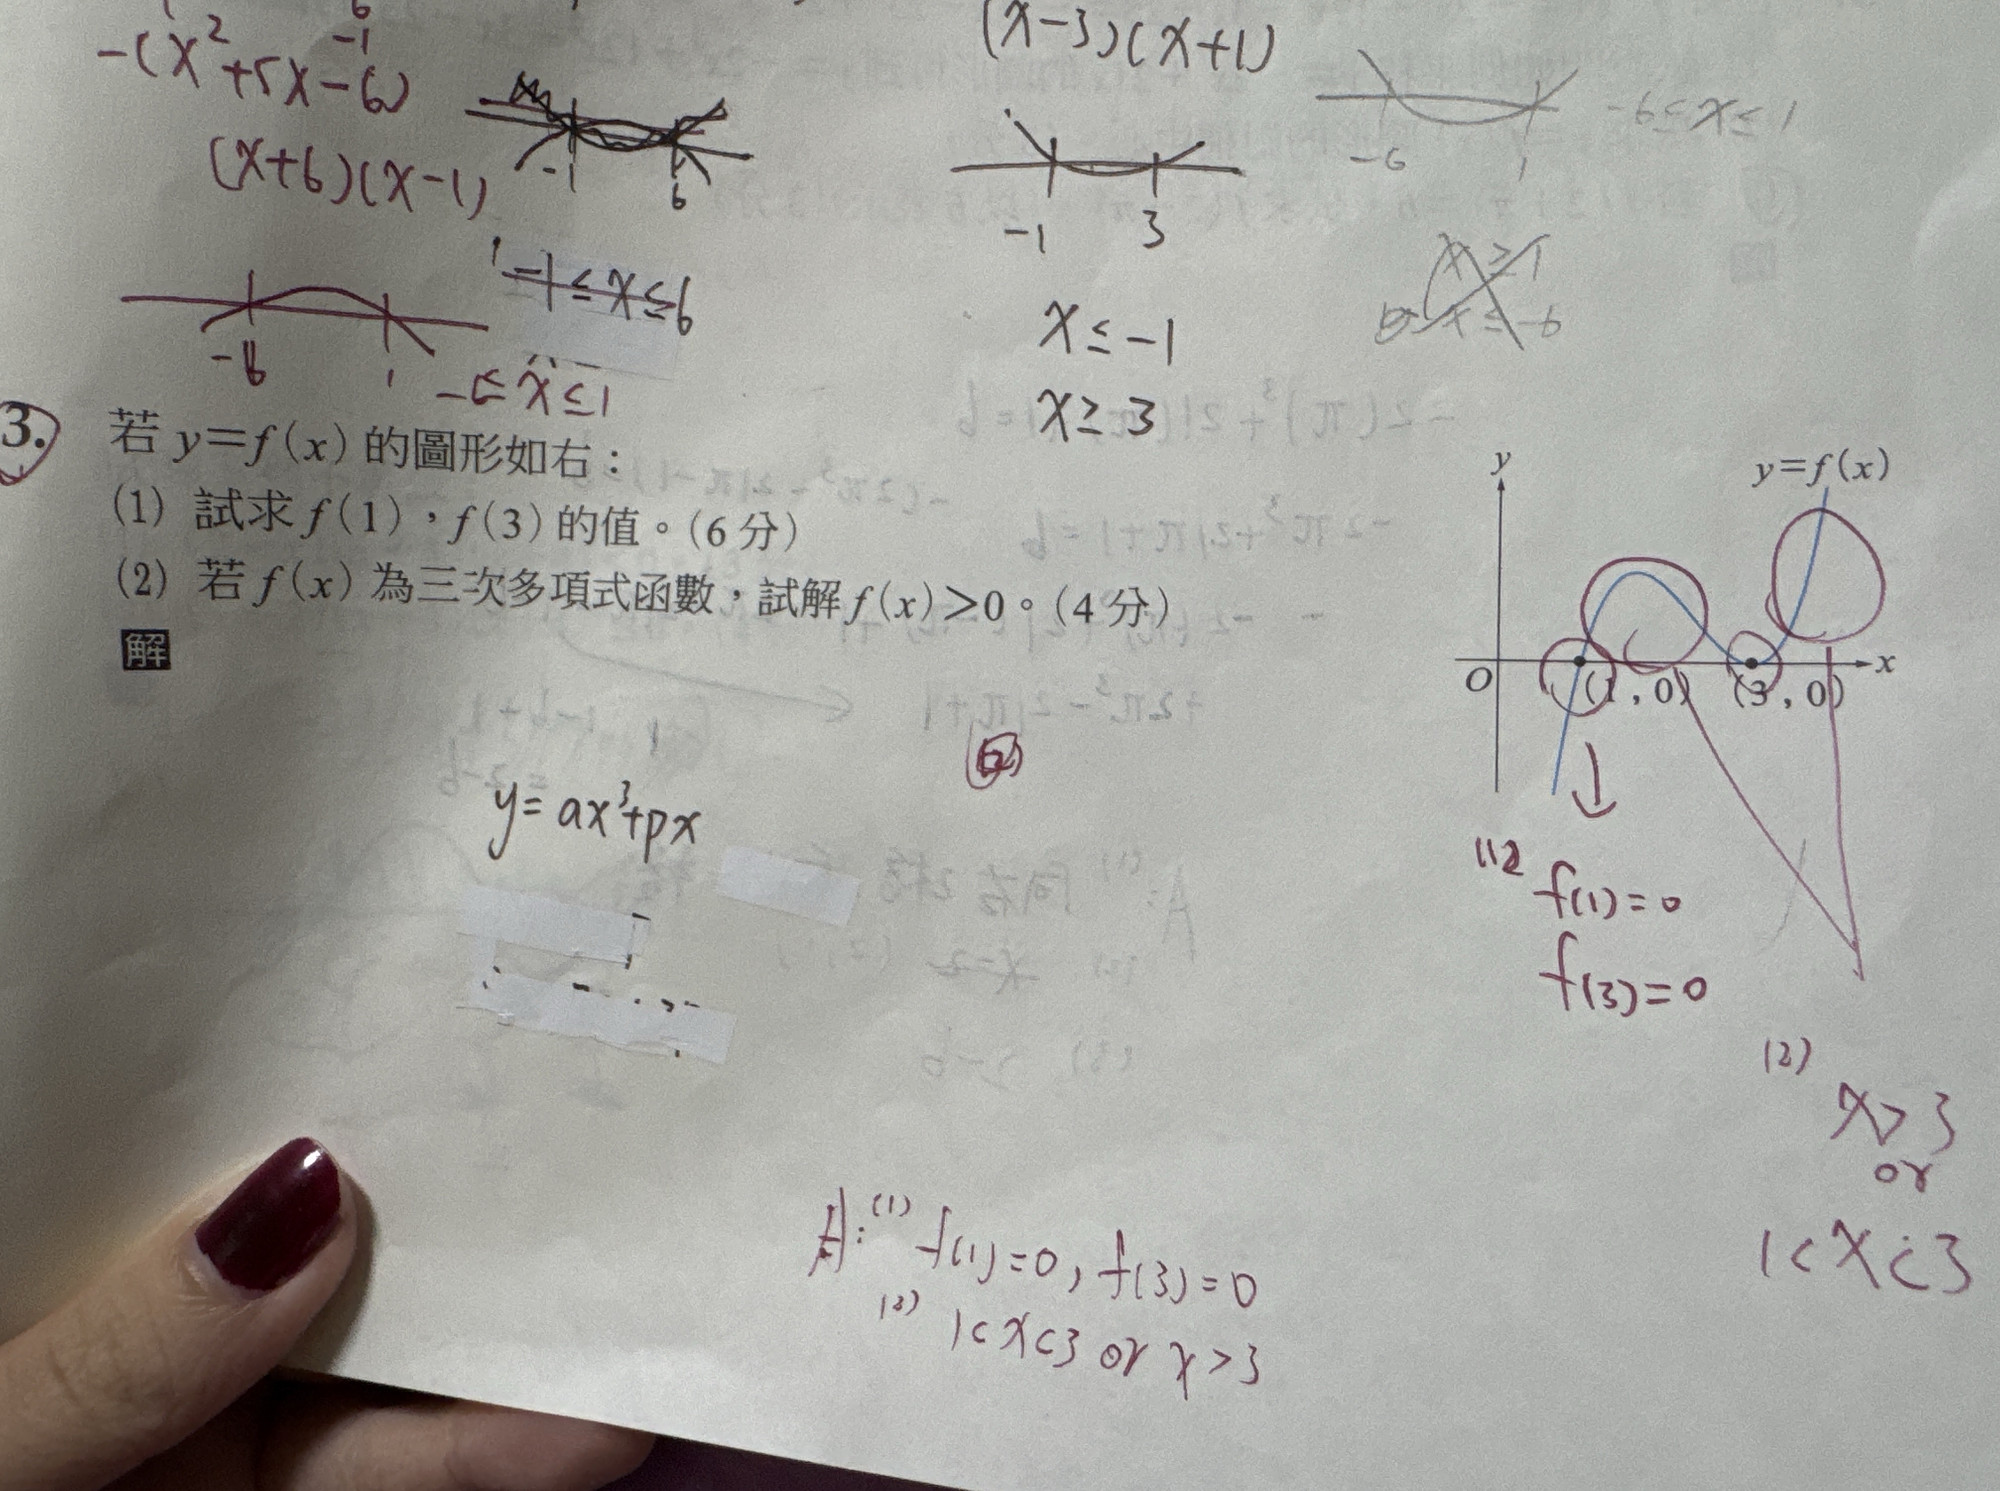 -(x²+5x-6)
-1
(x+6)(x-1)
-1
6
-1≤x≤6
-6
1
-6≤x≤1
(x-3)(x+1)
-1
3
x≤-1
x≥3
-6
1
-6≤x≤1
x≥1
x≤-6
3.
若 y=f(x) 的圖形如右：
(1) 試求 f(1)，f(3) 的值。(6 分)
(2) 若 f(x) 為三次多項式函數，試解 f(x)>0。(4 分)
解
y=ax³+px
y
y=f(x)
O
(1,0)
(3,0)
x
f(1)=0
f(3)=0
(2)
x>3
or
1<x<3
A:(1) f(1)=0, f(3)=0
(2) 1<x<3 or x>3